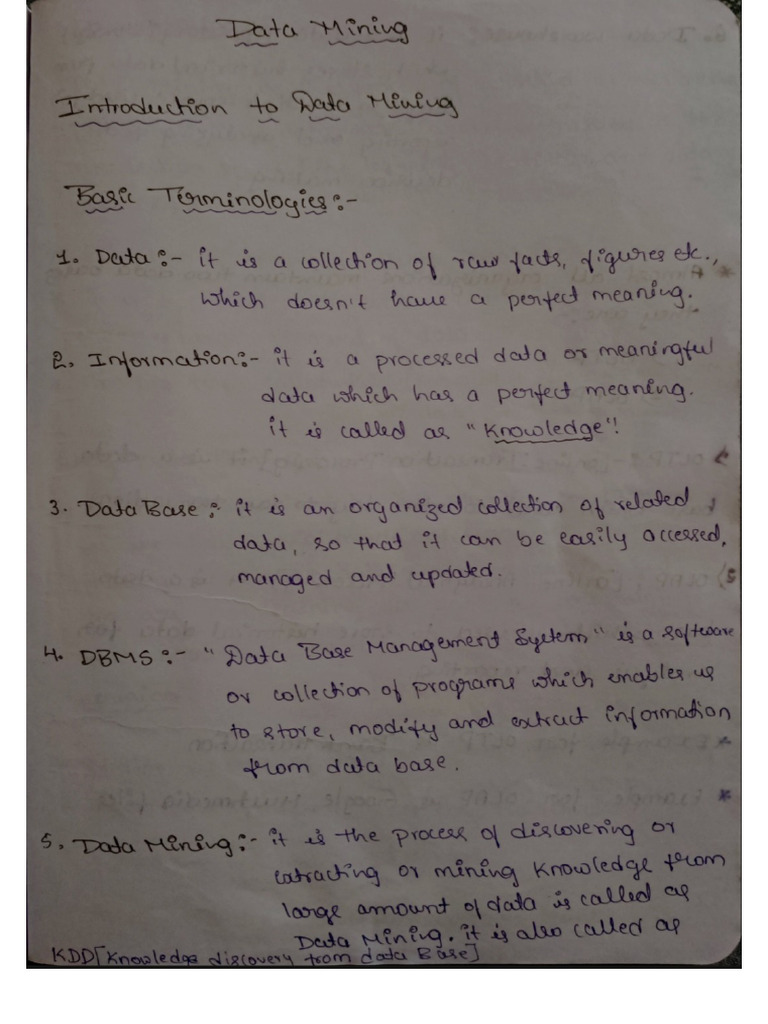 Data Mining
Introduction to Data Mining
Basic Terminologies:-
1. Data:- it is a collection of raw facts, figures etc.,
which doesn't have a perfect meaning.
2. Information:- it is a processed data or meaningful
data which has a perfect meaning.
it is called as "Knowledge"!
3. Data Base: it is an organized collection of related
data, so that it can be easily accessed,
managed and updated.
4. DBMS:- "Data Base Management System" is a software
or collection of programs which enables us
to store, modify and extract information
from data base.
5. Data Mining:- it is the process of discovering or
extracting or mining Knowledge from
large amount of data is called as
Data Mining. it is also called as
KDD[Knowledge discovery from data Base]